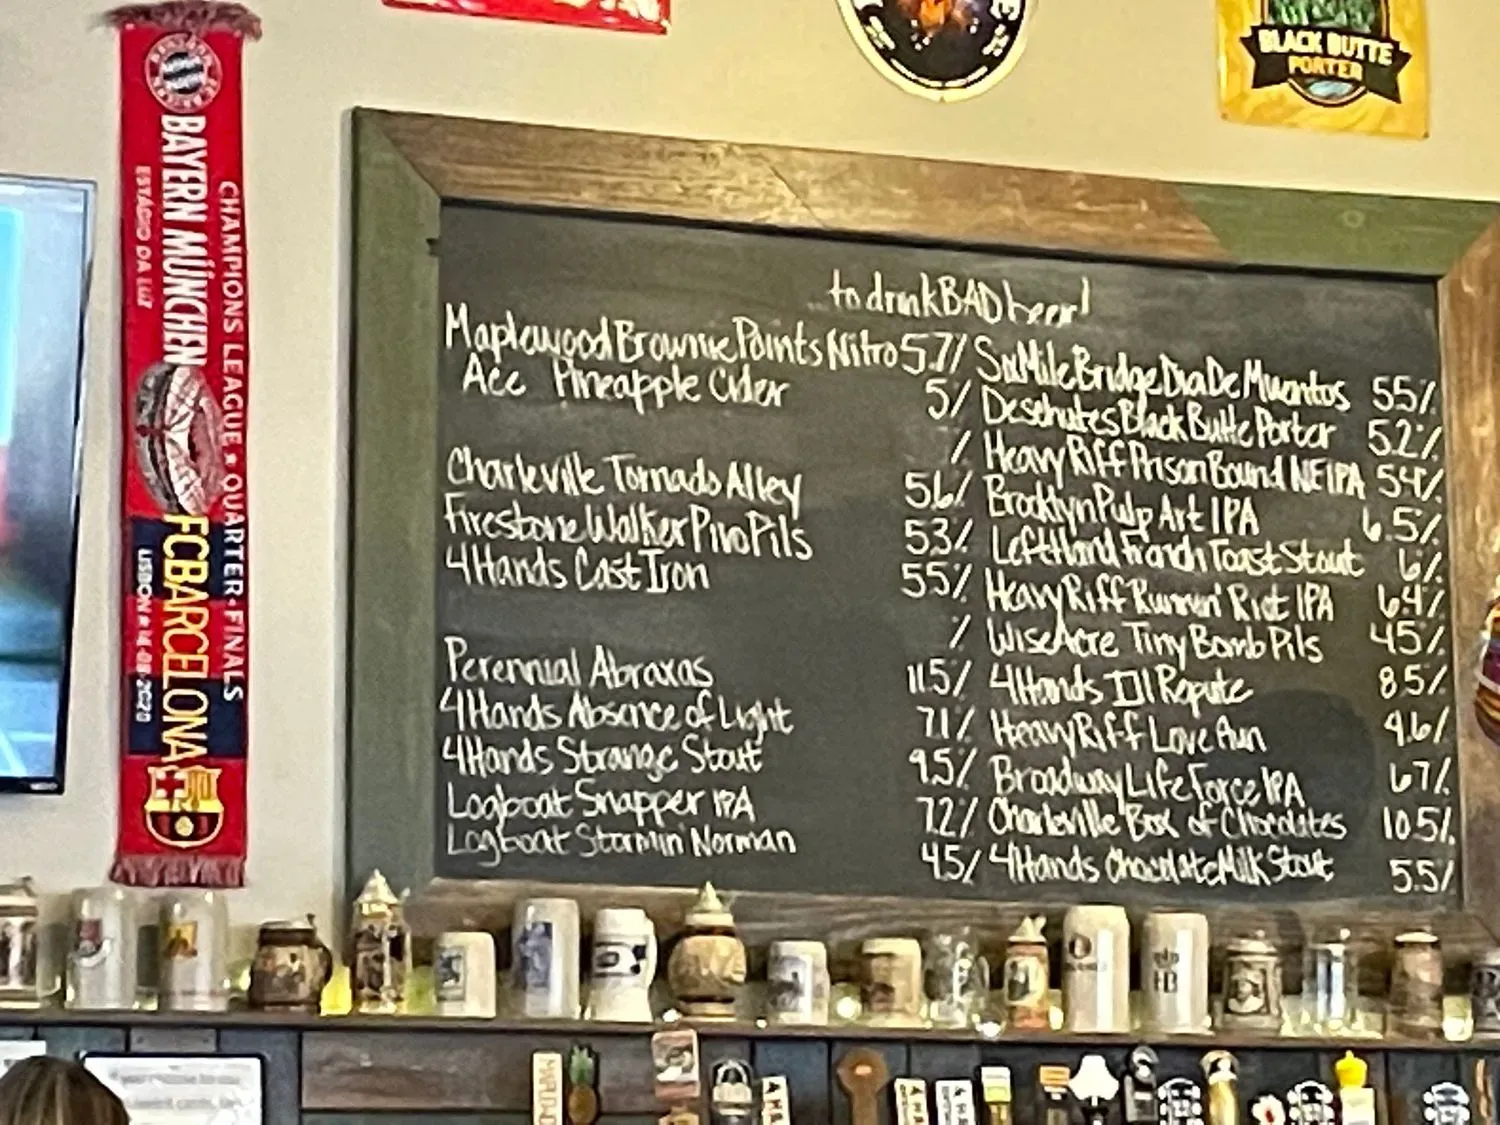 BLACK BUTTE
PORTER
BAYERN MÜNCHEN
ESTÁDIO DA LUZ
CHAMPIONS LEAGUE ★ QUARTER-FINALS
FC BARCELONA
LISBON ★ 14-08-2020
to drink BAD beer!
Maplewood Brownie Points Nitro 5.7%
Ace Pineapple Cider 5%
%
Charleville Tornado Alley 5.6%
Firestone Walker Pivo Pils 5.3%
4 Hands Cast Iron 5.5%
%
Perennial Abraxas 11.5%
4 Hands Absence of Light 7.1%
4 Hands Strange Stout 9.5%
Logboat Snapper IPA 7.2%
Logboat Stormin' Norman 4.5%
Six Mile Bridge Dia De Muertos 5.5%
Deschutes Black Butte Porter 5.2%
Heavy Riff Prison Bound NEIPA 5.4%
Brooklyn Pulp Art IPA 6.5%
Left Hand French Toast Stout 6%
Heavy Riff Runnin' Riot IPA 6.4%
WiseAcre Tiny Bomb Pils 4.5%
4 Hands Ill Repute 8.5%
Heavy Riff Love Gun 4.6%
Broadway Life Force IPA 6.7%
Charleville Box of Chocolates 10.5%
4 Hands Chocolate Milk Stout 5.5%